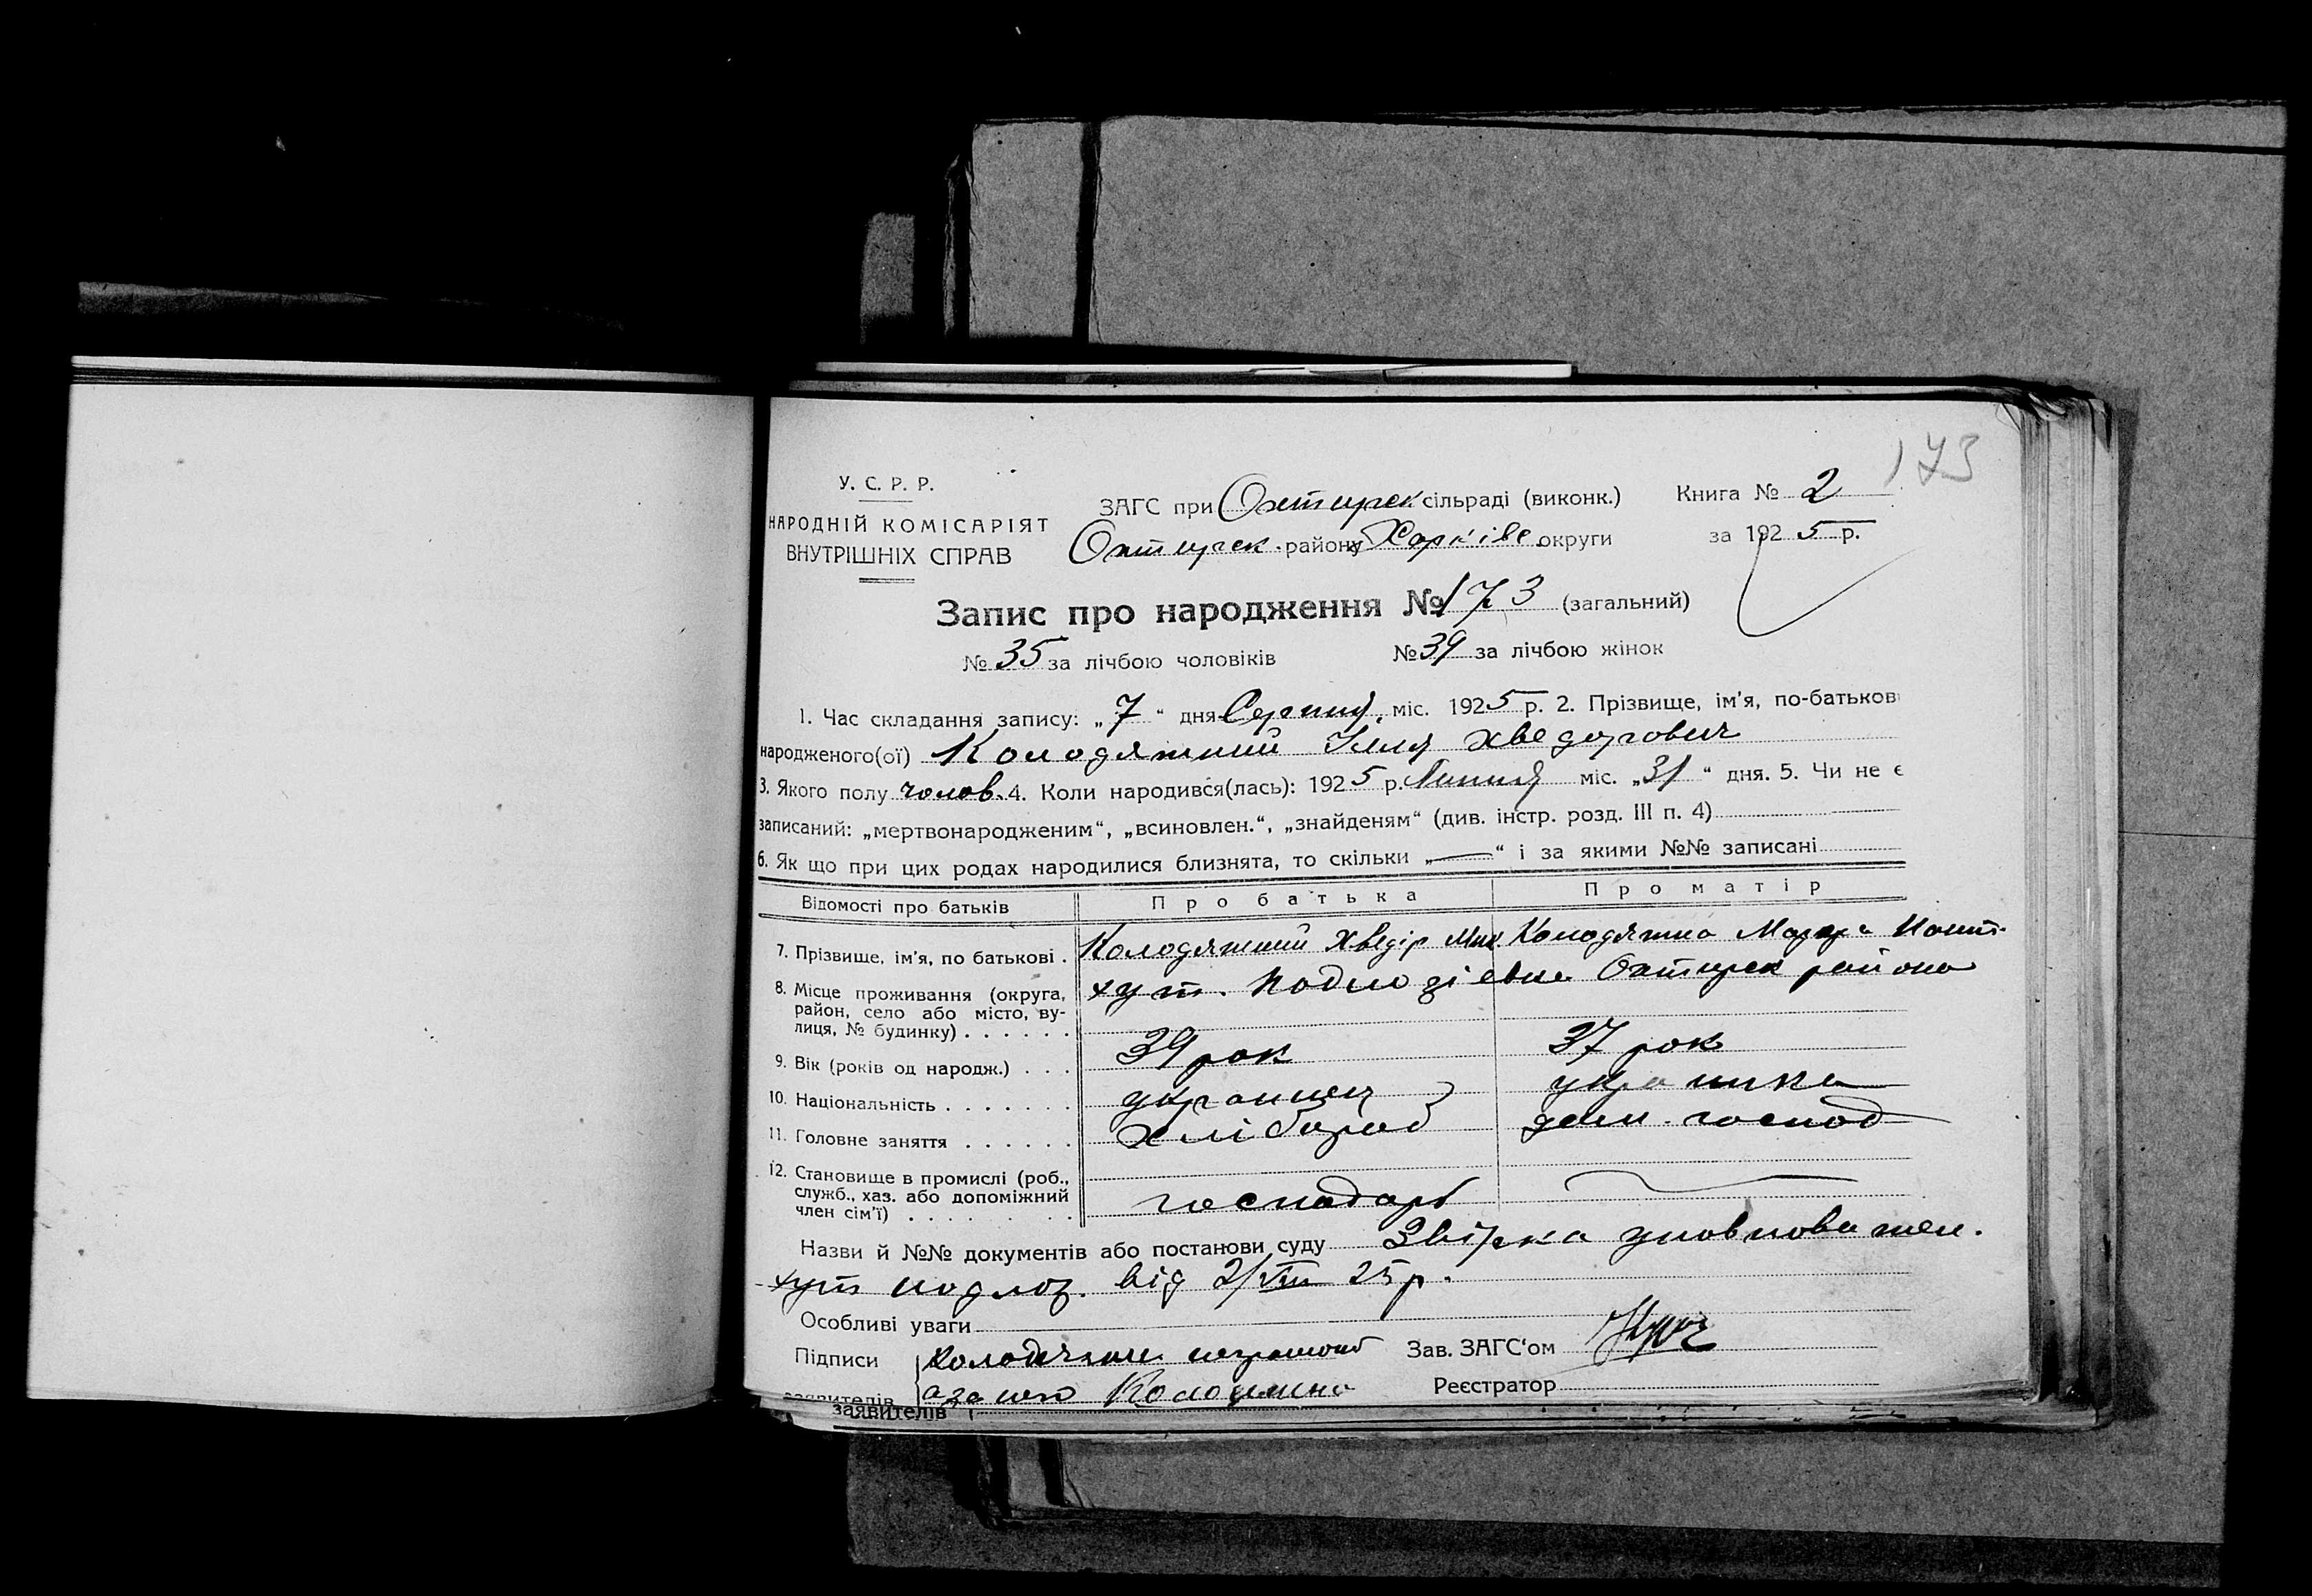 173
У. С. Р. Р.
НАРОДНІЙ КОМІСАРІЯТ
ВНУТРІШНІХ СПРАВ
ЗАГС при Охтирек сільраді (виконк.) Книга № 2
Охтирек. району Харківе округи за 1925 р.
Запис про народження № 173 (загальний)
№ 35 за лічбою чоловіків № 39 за лічбою жінок
1. Час складання запису: „7“ дня Серпня міс. 1925 р. 2. Прізвище, ім'я, по-батькові
народженого(ої) Колодяжний Ілля Хведорович
3. Якого полу чолов. 4. Коли народився(лась): 1925 р. Липня міс. „31“ дня. 5. Чи не є
записаний: „мертвонародженим“, „всиновлен.“, „знайденям“ (див. інстр. розд. III п. 4)
6. Як що при цих родах народилися близнята, то скільки „—“ і за якими №№ записані
Відомості про батьків Про батька Про матір
7. Прізвище, ім'я, по батькові . Колодяжний Хведір Мик. Колодяжна
8. Місце проживання (округа, район, село або місто, вулиця, № будинку) . . . . . . хут. Охтирек району
9. Вік (років од народж.) . . . 39 рок 37 рок
10. Національність . . . . . . . українец українка
11. Головне заняття . . . . . . хлібороб дом. господ
12. Становище в промислі (роб., служб., хаз. або допоміжний член сім'ї) . . . . . . . . господарь
Назви й №№ документів або постанови суду уповноважен.
хут подлоз. від 2/VIII 25 р.
Особливі уваги
Підписи Колодяжний неграмот Зав. ЗАГС'ом
заявителів а за него Реєстратор
заявителів